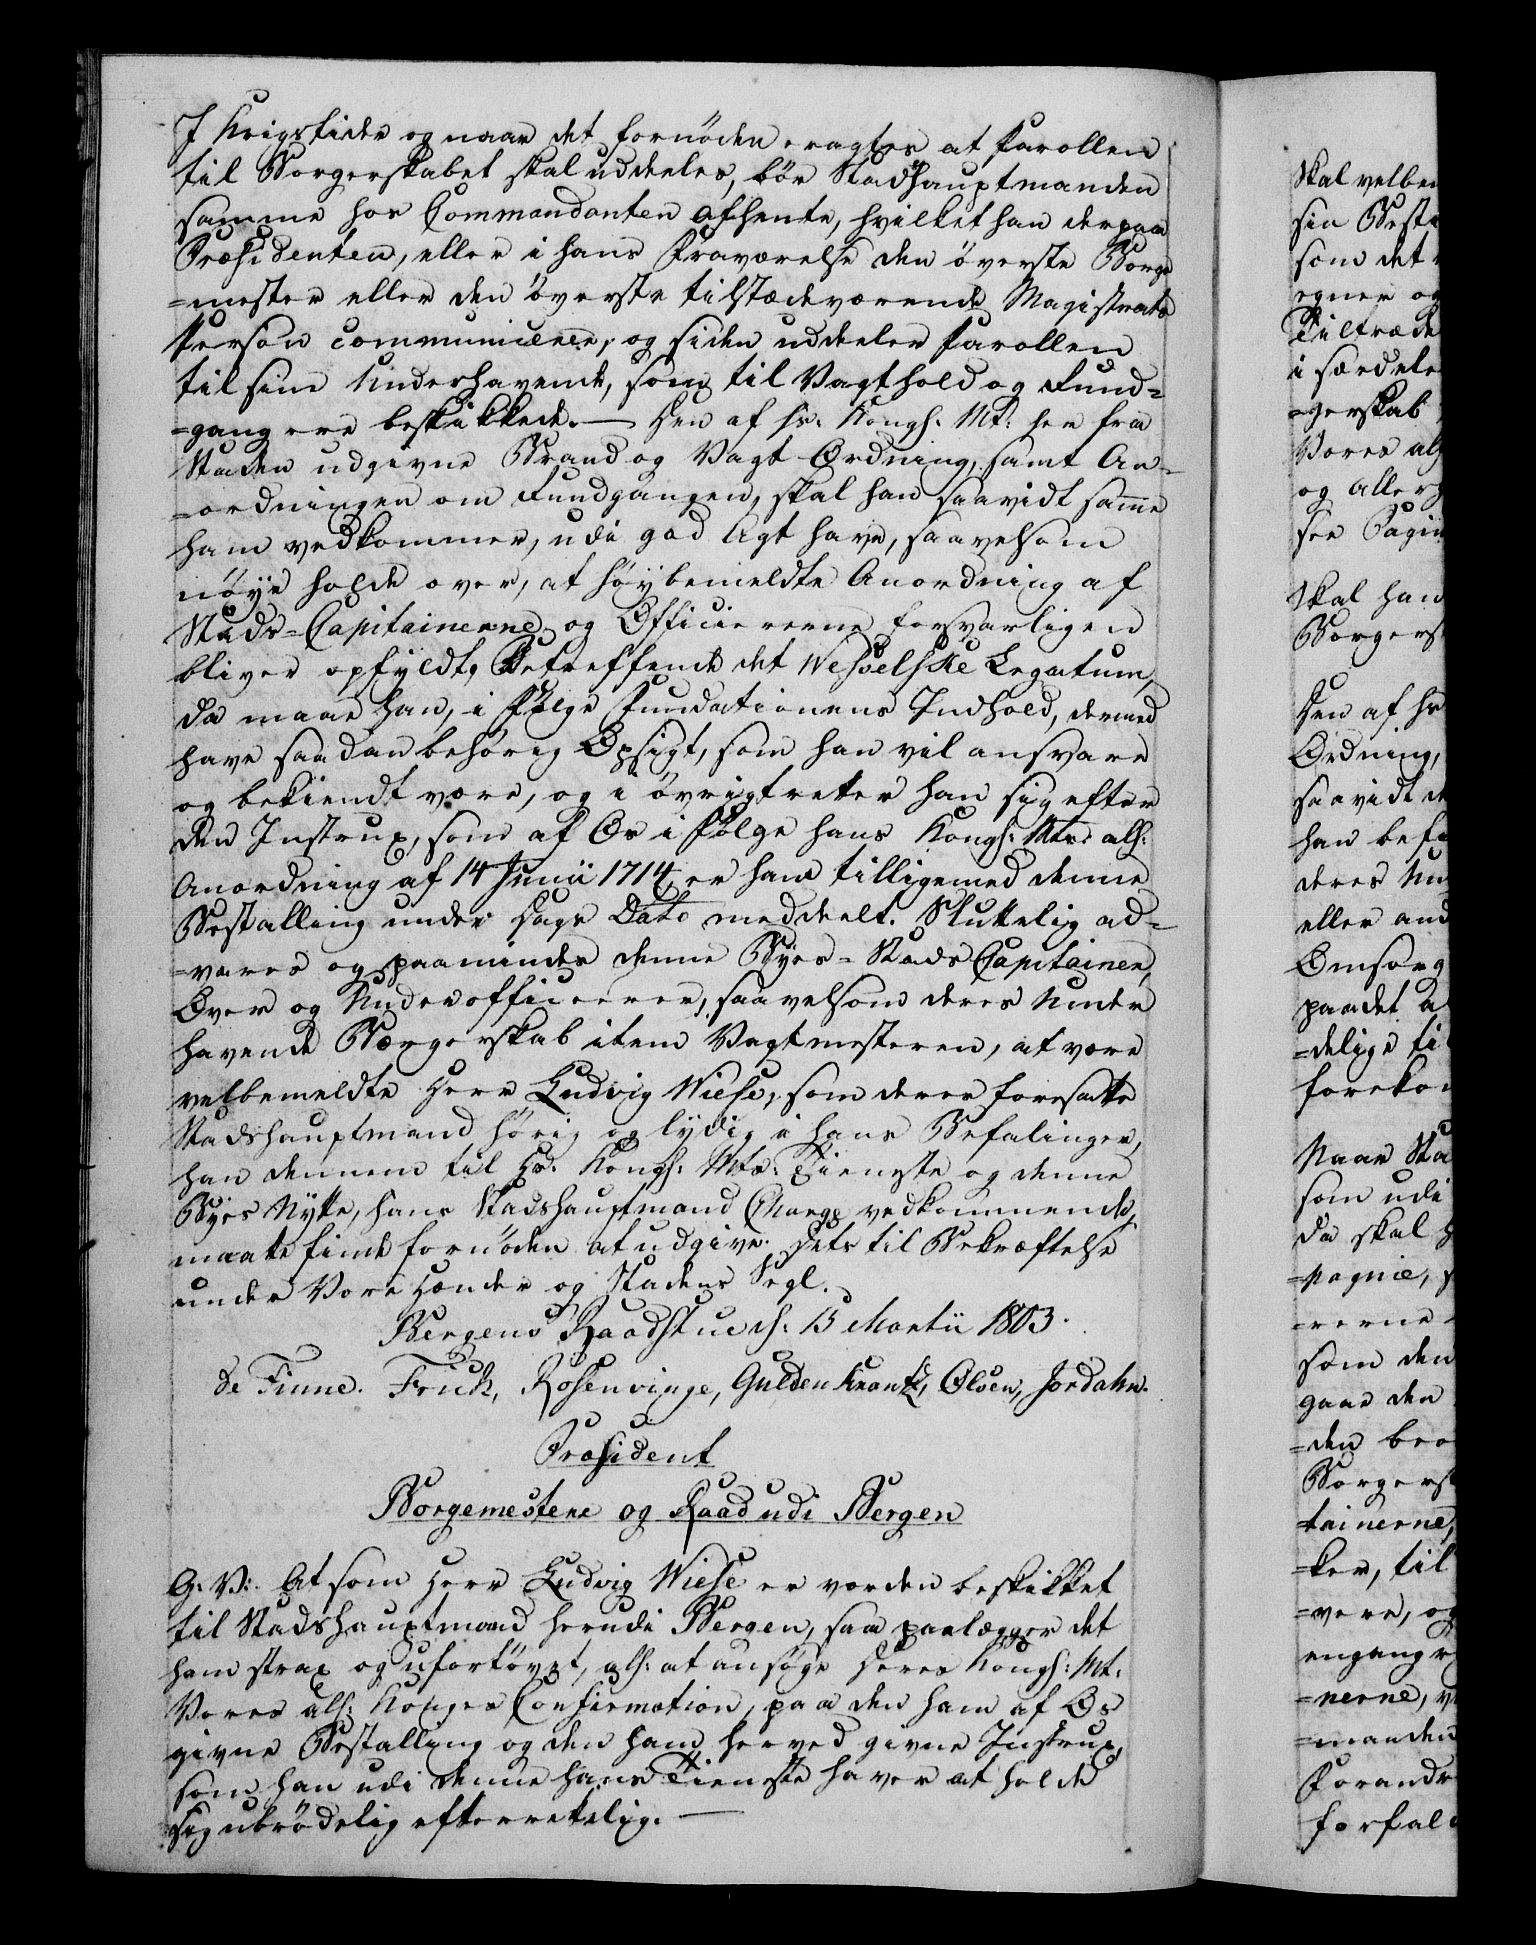 I Krigstider og naar det fornöden eragtes at Parollen
til Borgerskabet skal uddeeles, bör Stadshauptmanden
samme hos Commandanten afhente, hvilket han derpaa
Præsidenten, eller i hans Fraværelse den överste Borge
=mester eller den överste tilstædeværende Magistrats
Person communicerer, og siden uddeeler Parollen
til sine Underhavende, som til Vagthold og Rund=
=gang ere beskikkede. — Den af Hs: Kongl: Mt: her fra
Staden udgivne Brand og Vagt Ordning, samt An=
=ordningen om Rundgangen, skal han saavidt samme
ham vedkommer, udi god Agt have, saavelsom
nöye holde over, at höybemeldte Anordning af
Stads=Capitainerne og Officiererne forsvarligen
bliver opfyldt, Betreffende det Wesselske Legatum,
da maae han, i Fölge Fundationens Indhold, dermed
have saadan behörig Opsigt, som han vil ansvare
og bekiendt være, og i övrigt retter han sig efter
den Instrux, som af Os i Fölge hans Kongl: Mts: all:
Anordning af 14 Junii 1714, er ham tilligemed denne
Bestalling under Dags Dato meddeelt. Sluttelig ad=
=vares og paamindes denne Byes=Stads Capitainer,
Over og Underofficerer, saavelsom deres Under
havende Borgerskab item Vagtmesteren, at være
velbemeldte Herr Ludvig Wiese, som deres foresatte
Stadshauptmand hörig og lydig i hans Befalinger,
han dennem til Hs: Kongl: Mts: Tieneste og denne
Byes Nytte, hans Stadshauptmand Charge vedkommende,
maatte finde fornöden at udgive. Dets til Bekræftelse
under Vore Hænder og Stadens Segl.
Bergens Raadstue d: 15 Martii 1803.
De Fine. Frick, Rosenvinge, Guldenkrantz, Olsen, Jordahn.
Præsident
Borgemestere og Raad udi Bergen
G: V: At som Herr Ludvig Wiese er vorden beskikket
til Stadshauptmand herudi Bergen, saa paalægges det
ham strax og ufortövet, all: at ansöge Deres Kongl: Mt:
Vores all: Konges Confirmation, paa den ham af Os
givne Bestalling og den ham herved givne Instrux,
som han udi denne hans Tieneste haver at holde
sig ubrödelig efterrettelig. —
Skal velbe
sin Besta
som det
egner og
Tiltræde
i særdele
=gerskab
Vores al
og allerg
see Pagin
Skal han
Borgers
Den af Hs
Ordning,
saavidt de
han befi
deres Un
eller and
Omsorg
paadet a
=delige ti
forekom
Naar Sta
som udi
da skal
=pagnie,
=rerne
som den
gaae den
=den bro
Borgers
tainerne,
=ker, til
=vere, og
engang
=nerne,
=manden
Forandr
forfald